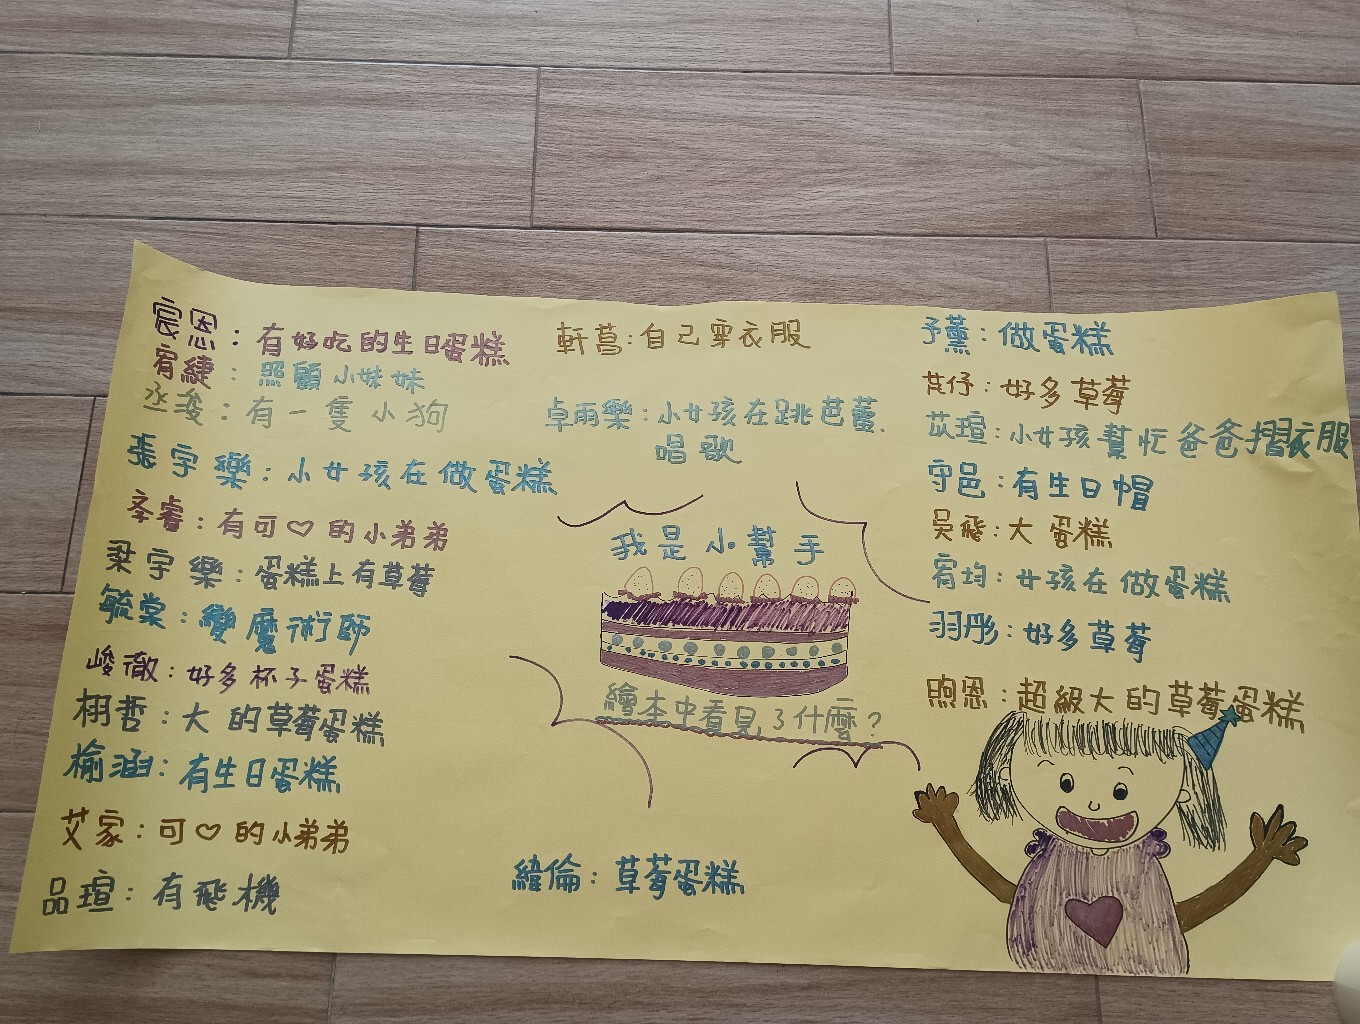 宸恩：有好吃的生日蛋糕
宥緁：照顧小妹妹
丞浚：有一隻小狗
張宇樂：小女孩在做蛋糕
夆睿：有可♡的小弟弟
梁宇樂：蛋糕上有草莓
毓棠：變魔術師
峻徹：好多杯子蛋糕
栩哲：大的草莓蛋糕
榆涵：有生日蛋糕
艾家：可♡的小弟弟
品瑄：有飛機
軒菖：自己穿衣服
卓雨樂：小女孩在跳芭蕾、
唱歌
我是小幫手
繪本中看見了什麼？
緯倫：草莓蛋糕
予薰：做蛋糕
芃伃：好多草莓
苡瑄：小女孩幫忙爸爸摺衣服
守邑：有生日帽
吳飛：大蛋糕
宥均：女孩在做蛋糕
羽彤：好多草莓
煦恩：超級大的草莓蛋糕